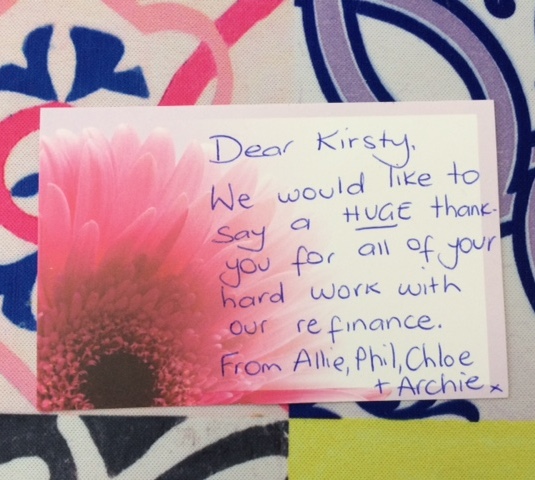 Dear Kirsty,
We would like to
say a HUGE thank-
you for all of your
hard work with
our refinance.
From Allie, Phil, Chloe
+ Archie x